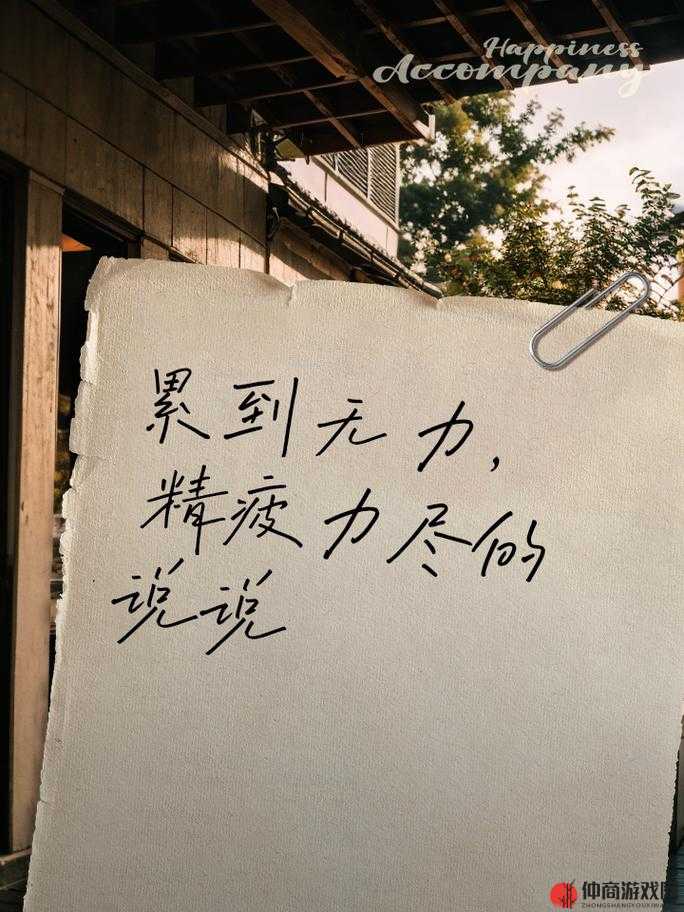 Happiness
Accompany
累到无力，
精疲力尽的
说说
仲商游戏
ZHONGSHANGYOUXIW